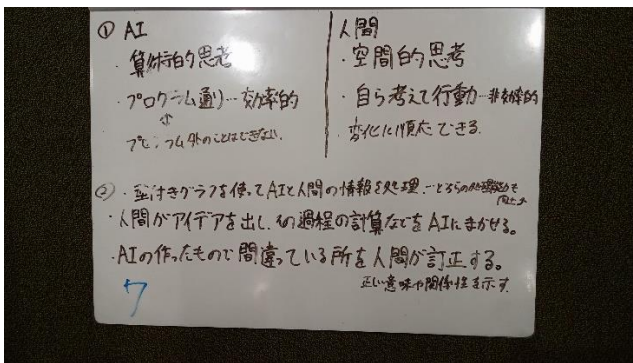 ① AI
・算術的思考
・プログラム通り…効率的
プログラム外のことはできない。
人間
・空間的思考
・自ら考えて行動…非効率的
変化に順応できる。
② ・型付きグラフを使ってAIと人間の情報を処理…どちらの処理能力も向上
・人間がアイデアを出し、その過程の計算などをAIにまかせる。
・AIの作ったもので間違っている所を人間が訂正する。
正しい意味や関係性を示す
7